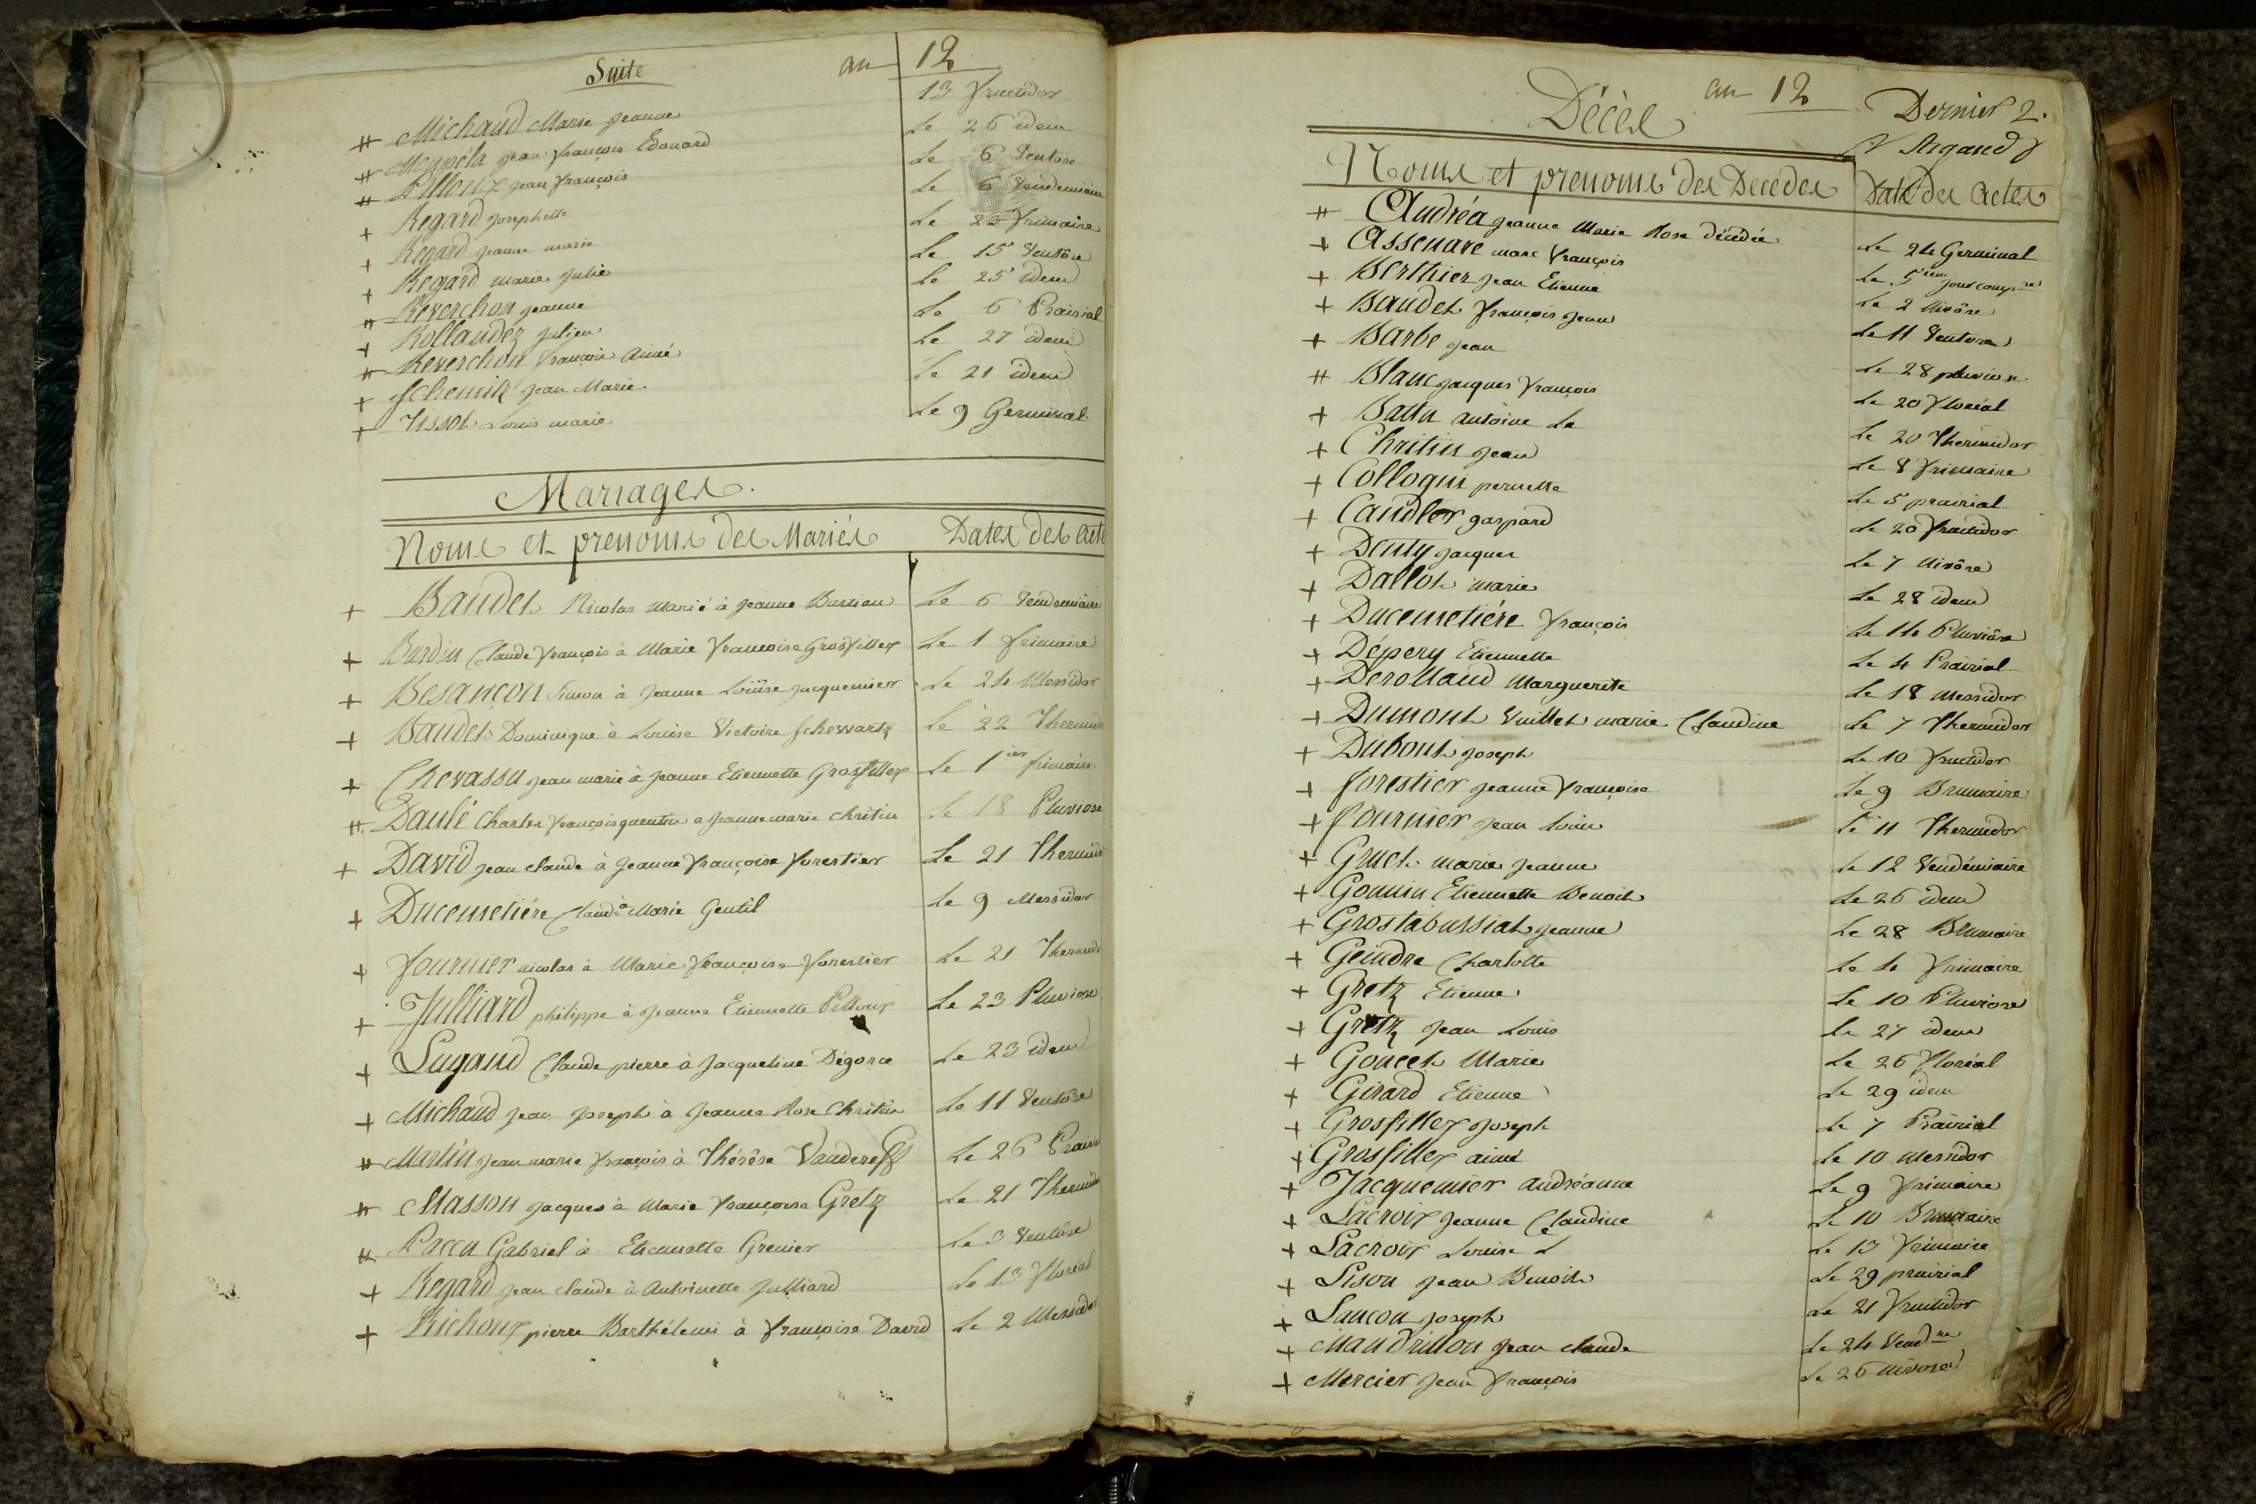 Suite an 12
# Michaud Marie Jeanne 13 fructidor
# Monnéla Jean françois Edouard Le 26 idem
# Pilloux Jean françois Le 6 Ventose
+ Regard Josephette Le 6 Vendemiaire
+ Regard Jeanne marie Le 23 frimaire
+ Regard marie Julie Le 15 Ventôse
# Reverchon Jeanne Le 25 idem
+ Rollandez Julien Le 6 Prairial
# Reverchon françois Aimé Le 27 idem
+ Schemitz Jean Marie Le 21 idem
+ Tissot Louis marie Le 9 Germinal
Mariages.
Noms et prenoms des Mariés Dates des acte
+ Baudet Nicolas marié à Jeanne Barrian Le 6 Vendemiaire
+ Burdin Claude françois à Marie françoise Grosfillex Le 1 frimaire
+ Besançon Simon à Jeanne Louise Jacquemier Le 24 Messidor
+ Baudet Dominique à Louise Victoire Schewartz Le 22 Thermid
+ Chevassu Jean marie à Jeanne Etiennette Grosfillex Le 1ier frimaire
# Daulé Charles françois quentin a Jeanne marie Chritin Le 18 Pluviose
+ David Jean claude à Jeanne françoise forestier Le 21 Thermid
+ Ducemetiére Claude à Marie Gentil Le 9 Messidor
+ fournier nicolas à Marie françoise forestier Le 21 Thermid
+ Julliard philippe à Jeanne Etiennette Pilloux Le 23 Pluviose
+ Lugand Claude pierre à Jacqueline Dégorce Le 23 idem
+ Michaud Jean Joseph à Jeanne Rose Chritin Le 11 Ventôse
# Martin Jean marie françois à Thérêse Vandereff Le 26 Prair
# Masson Jacques à Marie françoise Gretz Le 21 Thermid
# Pacca Gabriel à Etiennette Grenier Le 3 Ventôse
+ Regard Jean claude à Antoinette Julliard Le 13 floréal
+ Richoux pierre Barthélemi à françoise David Le 2 Messidor
Décès an 12 Dernier 2.
Argand
Noms et prenoms des Décédés Date des Actes
# Andréa Jeanne Marie Rose Décédée Le 24 Germinal
+ Assenare marc françois Le 5eme jour compre
+ Berthier Jean Etienne Le 2 Nivôse
+ Baudet françois Jean Le 11 Ventose
+ Barbe Jean Le 28 pluviose
# Blanc Jacques françois Le 20 floréal
+ Battu Antoine Le Le 20 Thermidor
+ Chritin Jean Le 8 frimaire
+ Colloqui pernette Le 5 prairial
+ Caudler gaspard Le 20 fructidor
+ Denty Jacques Le 7 Nivôse
+ Dallot marie Le 28 idem
+ Ducemetiére françois Le 14 Pluviôse
+ Dépery Etiennette Le 4 Prairial
+ Derolland Marguerite Le 18 Messidor
+ Dumont Vuillet marie Claudine Le 7 Thermidor
+ Dubout Joseph Le 10 fructidor
+ forestier Jeanne françoise Le 9 Brumaire
+ fournier Jean Louis Le 11 Thermidor
+ Gruet marie Jeanne Le 12 Vendémiaire
+ Gounin Etiennette Benoit Le 26 idem
+ Grostabussiat Jeanne Le 28 Brumaire
+ Geindre Charlotte Le 4 frimaire
+ Gretz Etienne Le 10 Pluviose
+ Gretz Jean Louis Le 27 idem
+ Goucet Marie Le 26 floréal
+ Girard Etienne Le 29 idem
+ Grosfillex Joseph Le 7 Prairial
+ Grosfillex aimé Le 10 Messidor
+ Jacquemier andréanne Le 9 frimaire
+ Lacroix Jeanne Claudine Le 10 Brumaire
+ Lacroix Louise L Le 13 frimaire
+ Lison Jean Benoit Le 29 prairial
+ Lancon Joseph Le 21 fructidor
+ Mandrillon Jean claude Le 24 Vendre
+ Mercier Jean françois Le 26 Nivose